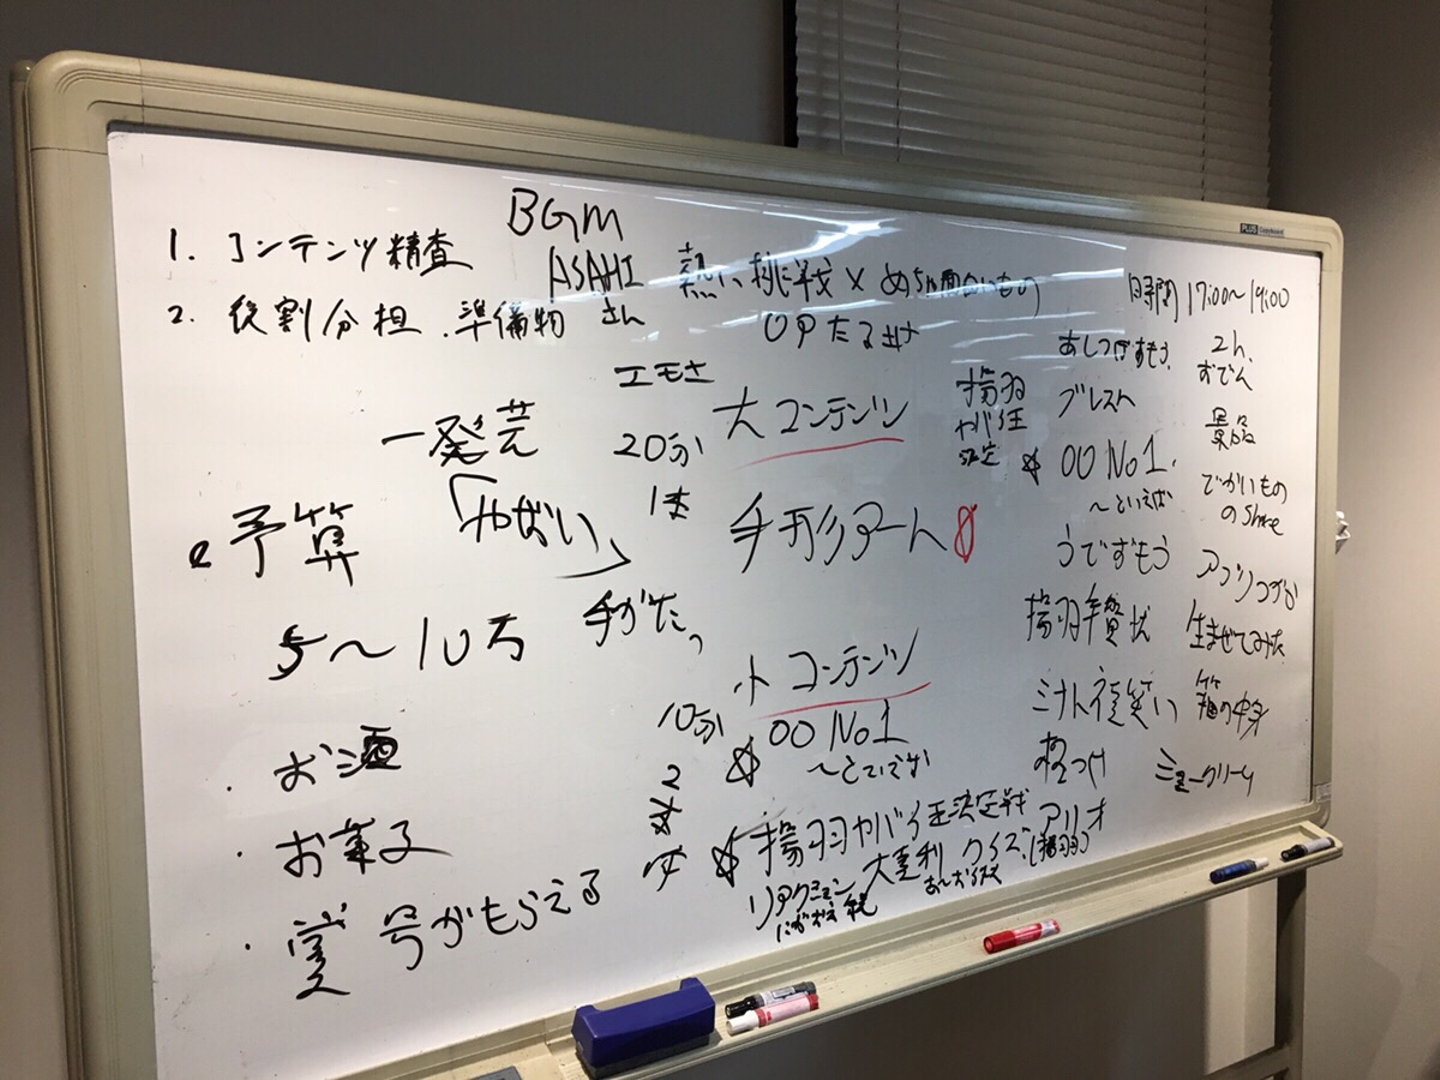 BGM
1. コンテンツ精査
2. 役割分担．準備物
ASAHI
さん
熱い挑戦×めちゃ面白いもの
時間 17:00〜19:00
エモさ
一発芸
「やばい」
20分
1本
・予算
5〜10万
手がた。
・お酒
・お菓子
・賞 号がもらえる
大コンテンツ
手形アート
小コンテンツ
10分
2
☆ 00 No1
☆ 揚羽ヤバイ王決定戦
リアクション
にがおえ
大喜利
クイズ
アリオ
(揚羽)
揚羽
ヤバイ王
決定
あしつぼずもう
ブレスト
☆ 00 No1.
〜といえば
うでずもう
揚羽年賀状
ミナト福笑い
2h.
おでん
景品
でかいもの
のshare
アプリつながり
生ませてみた
箱の中身
シュークリーム
PLUS